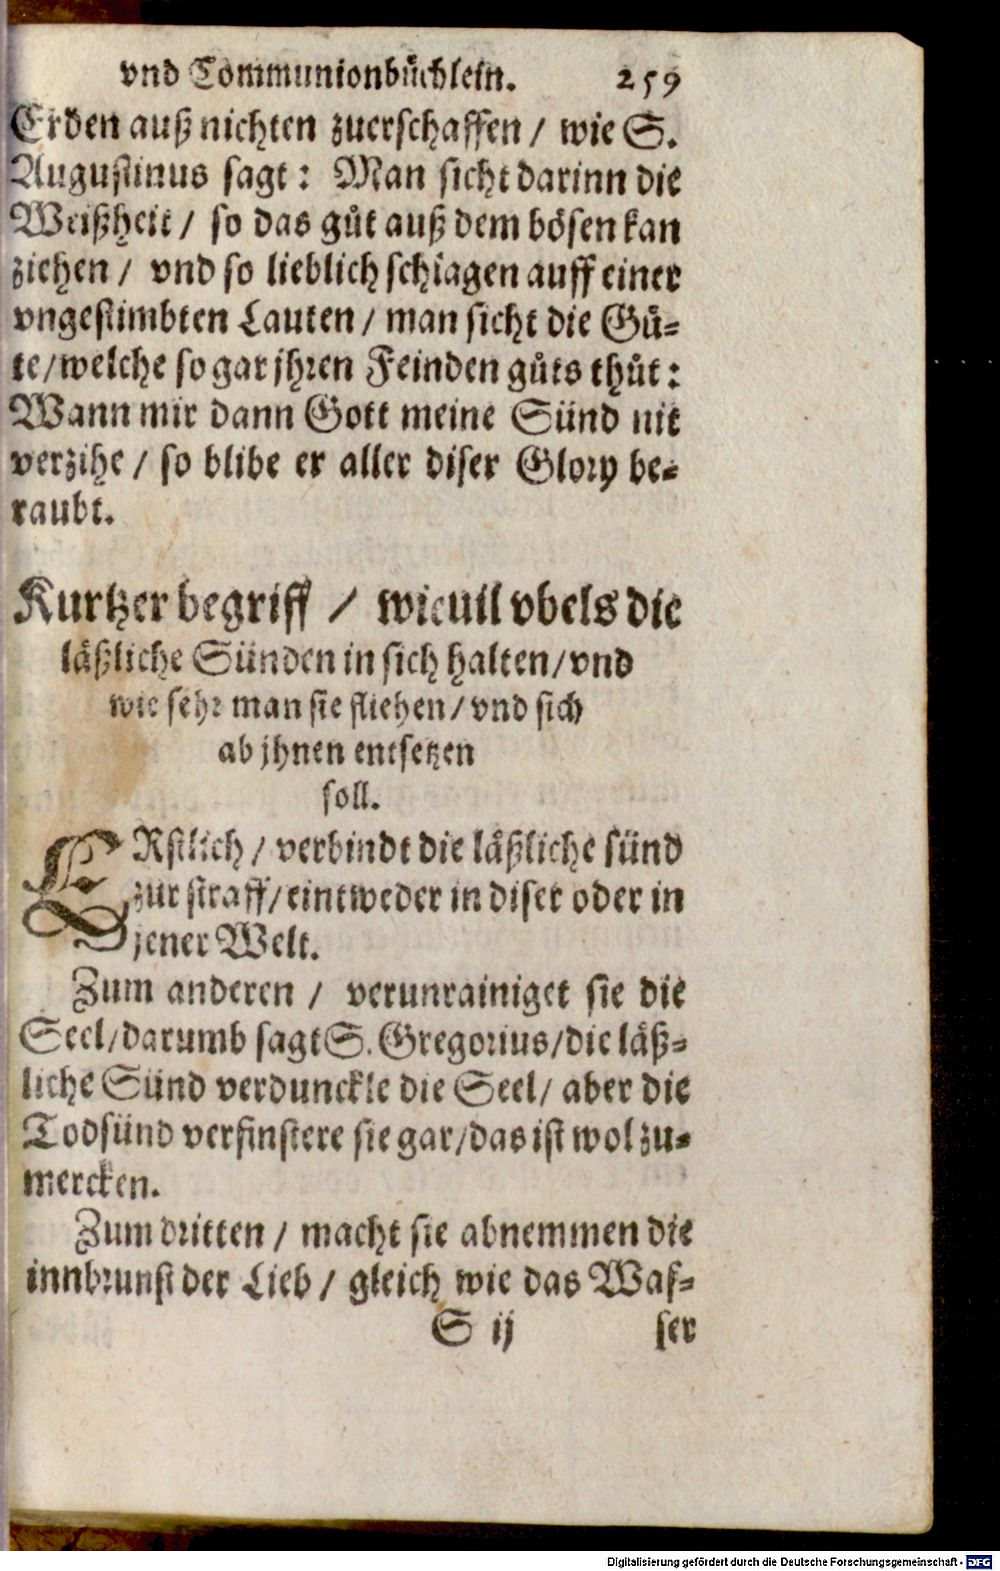 vnd Communionbůchlein. 259
Erden auß nichten zuerschaffen / wie S.
Augustinus sagt: Man sicht darinn die
Weißheit / so das gůt auß dem bösen kan
ziehen / vnd so lieblich schlagen auff einer
vngestimbten Lauten / man sicht die Gů-
te/welche so gar jhren Feinden gůts thůt:
Wann mir dann Gott meine Sünd nit
verzihe / so blibe er aller diser Glory be-
raubt.
Kurtzer begriff / wieuil vbels die
läßliche Sünden in sich halten/vnd
wie sehr man sie fliehen/vnd sich
ab jhnen entsetzen
soll.
ERstlich / verbindt die läßliche sünd
zur straff/eintweder in diser oder in
jener Welt.
Zum anderen / verunrainiget sie die
Seel/darumb sagt S. Gregorius/die läß-
liche Sünd verdunckle die Seel/ aber die
Todsünd verfinstere sie gar/das ist wol zu-
mercken.
Zum dritten / macht sie abnemmen die
innbrunst der Lieb / gleich wie das Was-
S ij ser
Digitalisierung gefördert durch die Deutsche Forschungsgemeinschaft - DFG